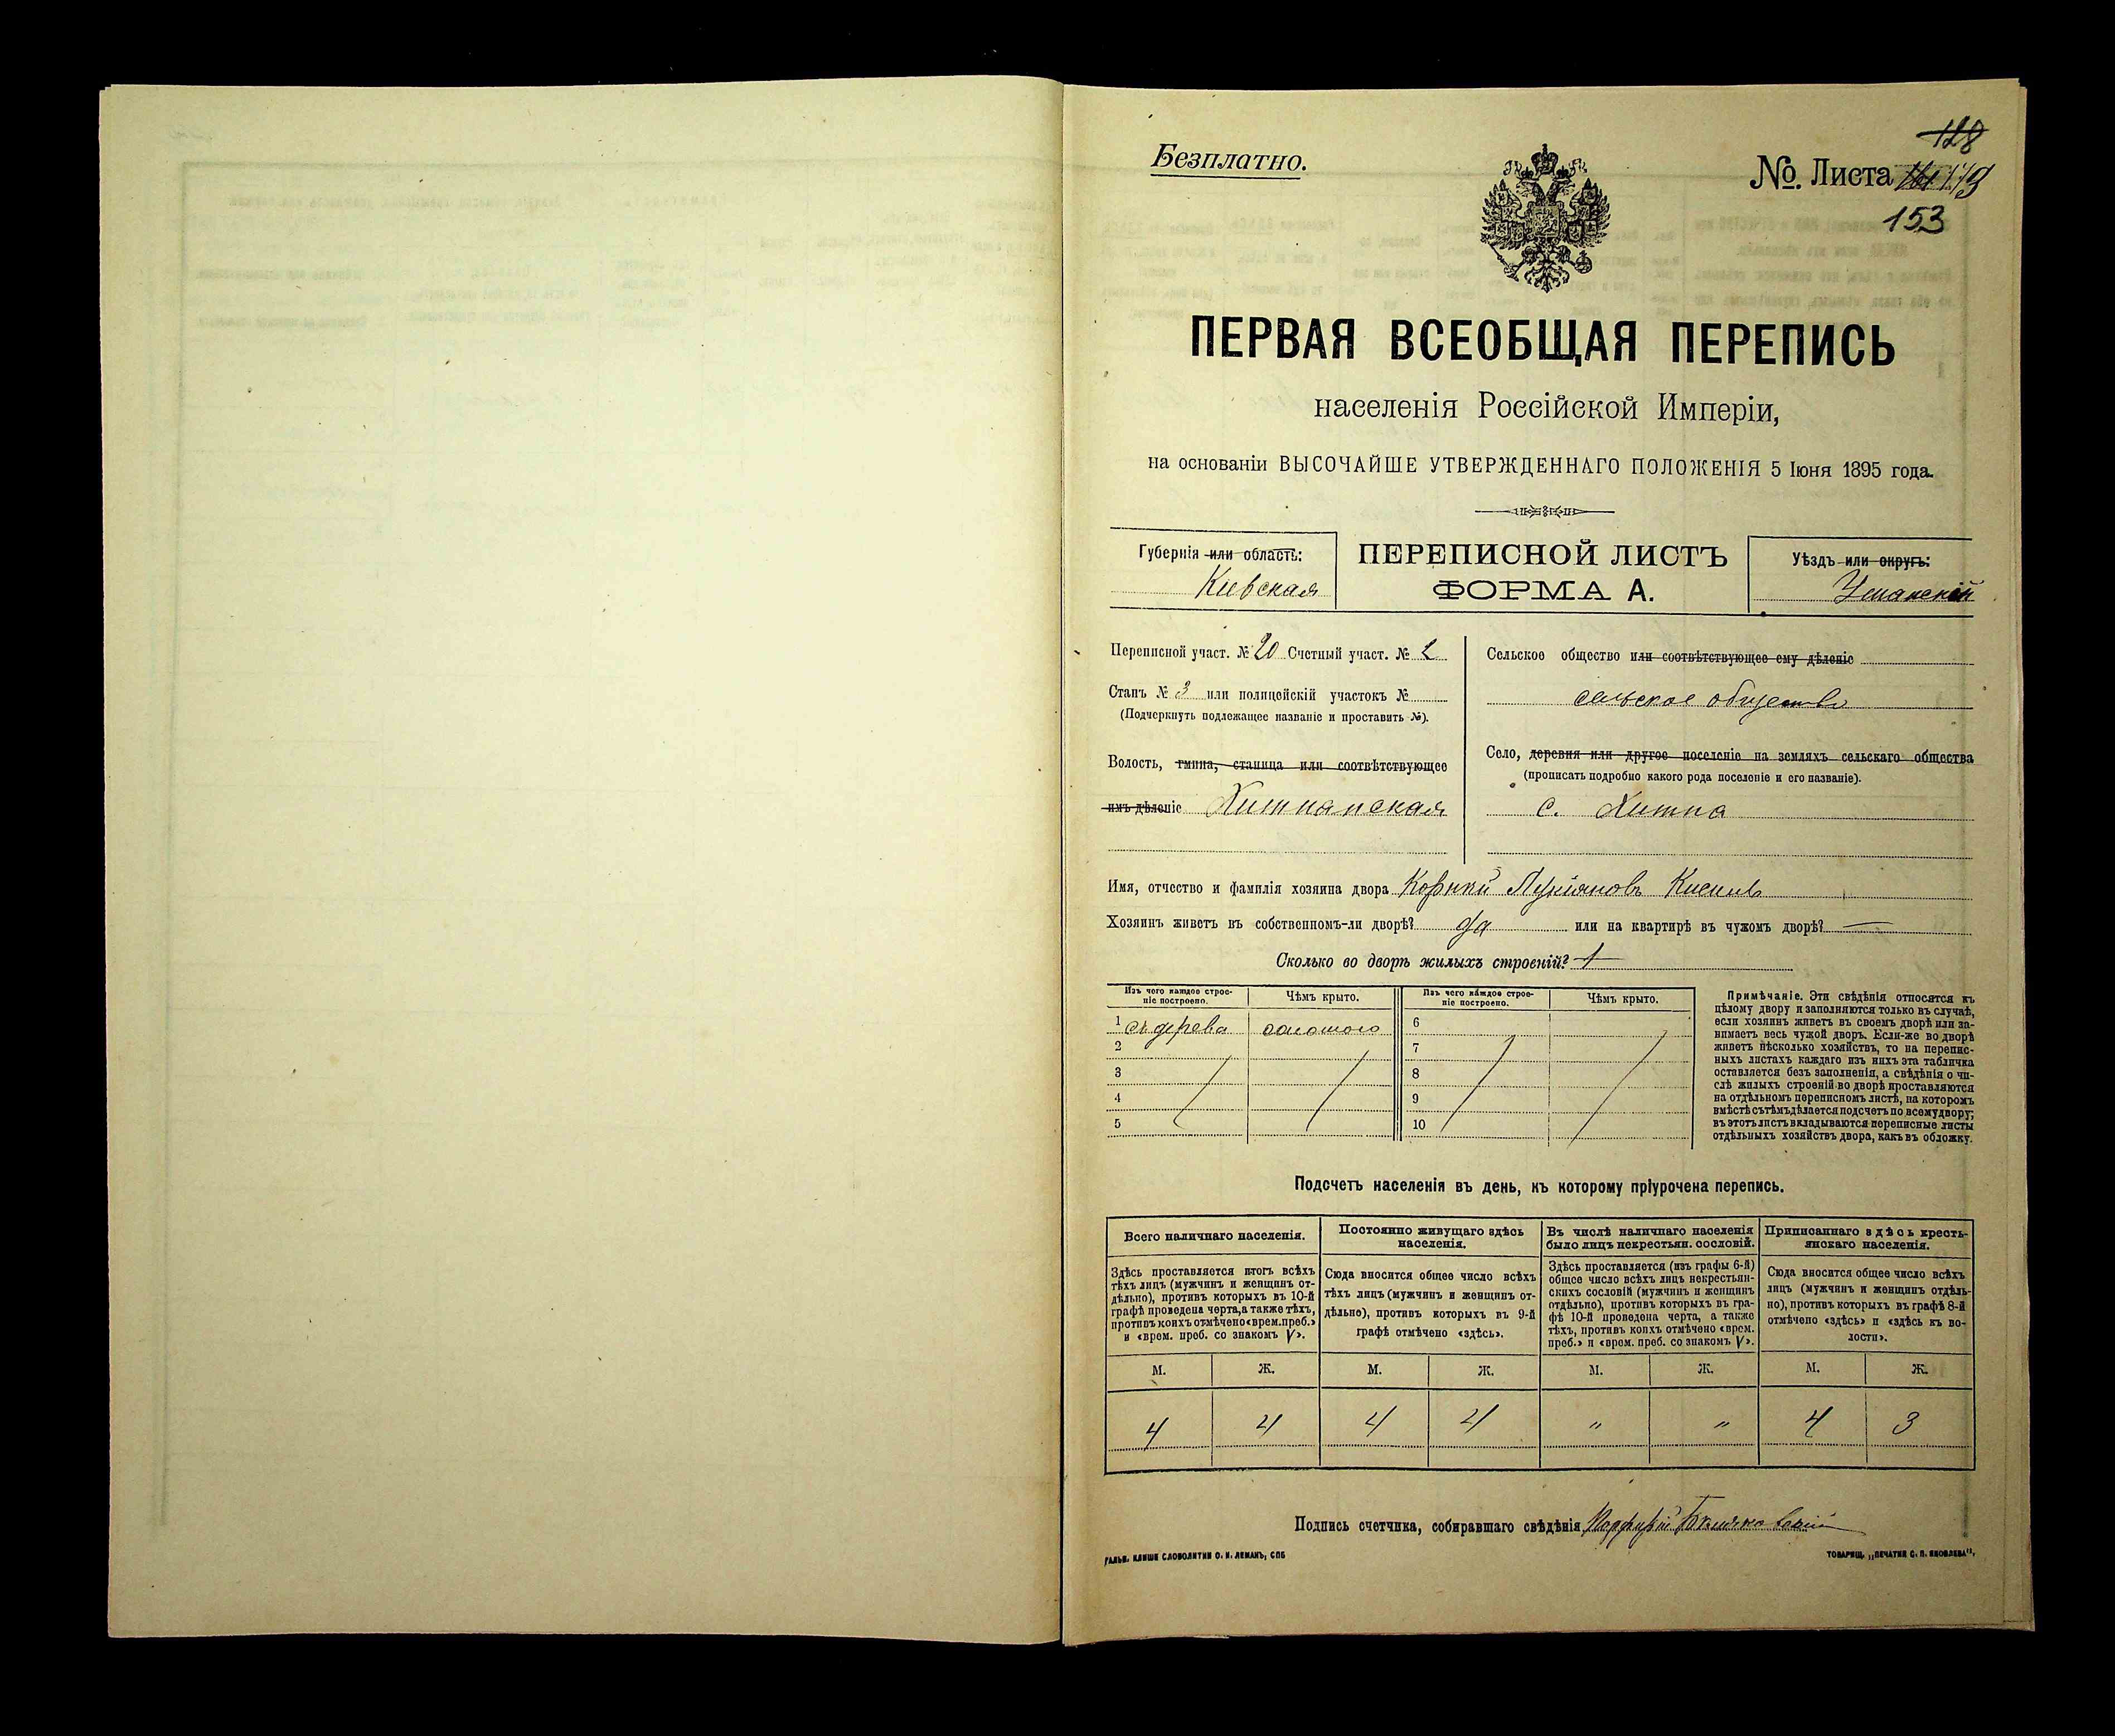 128
Безплатно.
№. Листа 179
153
ПЕРВАЯ ВСЕОБЩАЯ ПЕРЕПИСЬ
населенія Россійской Имперіи,
на основаніи ВЫСОЧАЙШЕ УТВЕРЖДЕННАГО ПОЛОЖЕНІЯ 5 Іюня 1895 года.
Губернія или область:
Кіевская
ПЕРЕПИСНОЙ ЛИСТЪ
ФОРМА А.
Уѣздъ или округъ:
Уманскій
Переписной участ. № 20 Счетный участ. № 2
Станъ № 3 или полицейскій участокъ №
(Подчеркнуть подлежащее названіе и проставить №).
Волость, гмина, станица или соотвѣтствующее
имъ дѣленіе Хижнянская
Сельское общество или соотвѣтствующее ему дѣленіе
сельское общество
Село, деревня или другое поселеніе на земляхъ сельскаго общества
(прописать подробно какого рода поселеніе и его названіе).
с. Хижна
Имя, отчество и фамилія хозяина двора Корній Лукіановъ
Хозяинъ живетъ въ собственномъ-ли дворѣ? да или на квартирѣ въ чужомъ дворѣ? —
Сколько во дворѣ жилыхъ строеній? 1
Изъ чего каждое строе-
ніе построено.
Чѣмъ крыто.
Изъ чего каждое строе-
ніе построено.
Чѣмъ крыто.
1 съ дерева соломою 6
2 7
3 8
4 9
5 10
Примѣчаніе. Эти свѣдѣнія относятся къ
цѣлому двору и заполняются только въ случаѣ,
если хозяинъ живетъ въ своемъ дворѣ или за-
нимаетъ весь чужой дворъ. Если-же во дворѣ
живетъ нѣсколько хозяйствъ, то на перепис-
ныхъ листахъ каждаго изъ нихъ эта табличка
оставляется безъ заполненія, а свѣдѣнія о чи-
слѣ жилыхъ строеній во дворѣ проставляются
на отдѣльномъ переписномъ листѣ, на которомъ
вмѣстѣ съ тѣмъ дѣлается подсчетъ по всему двору;
въ этотъ листъ вкладываются переписные листы
отдѣльныхъ хозяйствъ двора, какъ въ обложку.
Подсчетъ населенія въ день, къ которому пріурочена перепись.
Всего наличнаго населенія.
Здѣсь проставляется итогъ всѣхъ
тѣхъ лицъ (мужчинъ и женщинъ от-
дѣльно), противъ которыхъ въ 10-й
графѣ проведена черта, а также тѣхъ,
противъ коихъ отмѣчено «врем. преб.»
и «врем. преб. со знакомъ V».
Постоянно живущаго здѣсь
населенія.
Сюда вносится общее число всѣхъ
тѣхъ лицъ (мужчинъ и женщинъ от-
дѣльно), противъ которыхъ въ 9-й
графѣ отмѣчено «здѣсь».
Въ числѣ наличнаго населенія
было лицъ некрестьян. сословій.
Здѣсь проставляется (изъ графы 6-й)
общее число всѣхъ лицъ некрестьян-
скихъ сословій (мужчинъ и женщинъ
отдѣльно), противъ которыхъ въ гра-
фѣ 10-й проведена черта, а также
тѣхъ, противъ коихъ отмѣчено «врем.
преб.» и «врем. преб. со знакомъ V».
Приписаннаго здѣсь кресть-
янскаго населенія.
Сюда вносится общее число всѣхъ
лицъ (мужчинъ и женщинъ отдѣль-
но), противъ которыхъ въ графѣ 8-й
отмѣчено «здѣсь» и «здѣсь къ во-
лости».
М. Ж. М. Ж. М. Ж. М. Ж.
4 4 4 4 " " 4 3
Подпись счетчика, собиравшаго свѣдѣнія Порфирій
ГАЛЬВ. КЛИШЕ СЛОВОЛИТНИ О. И. ЛЕМАНЪ, СПБ
ТОВАРИЩ. „ПЕЧАТНЯ С. П. ЯКОВЛЕВА".